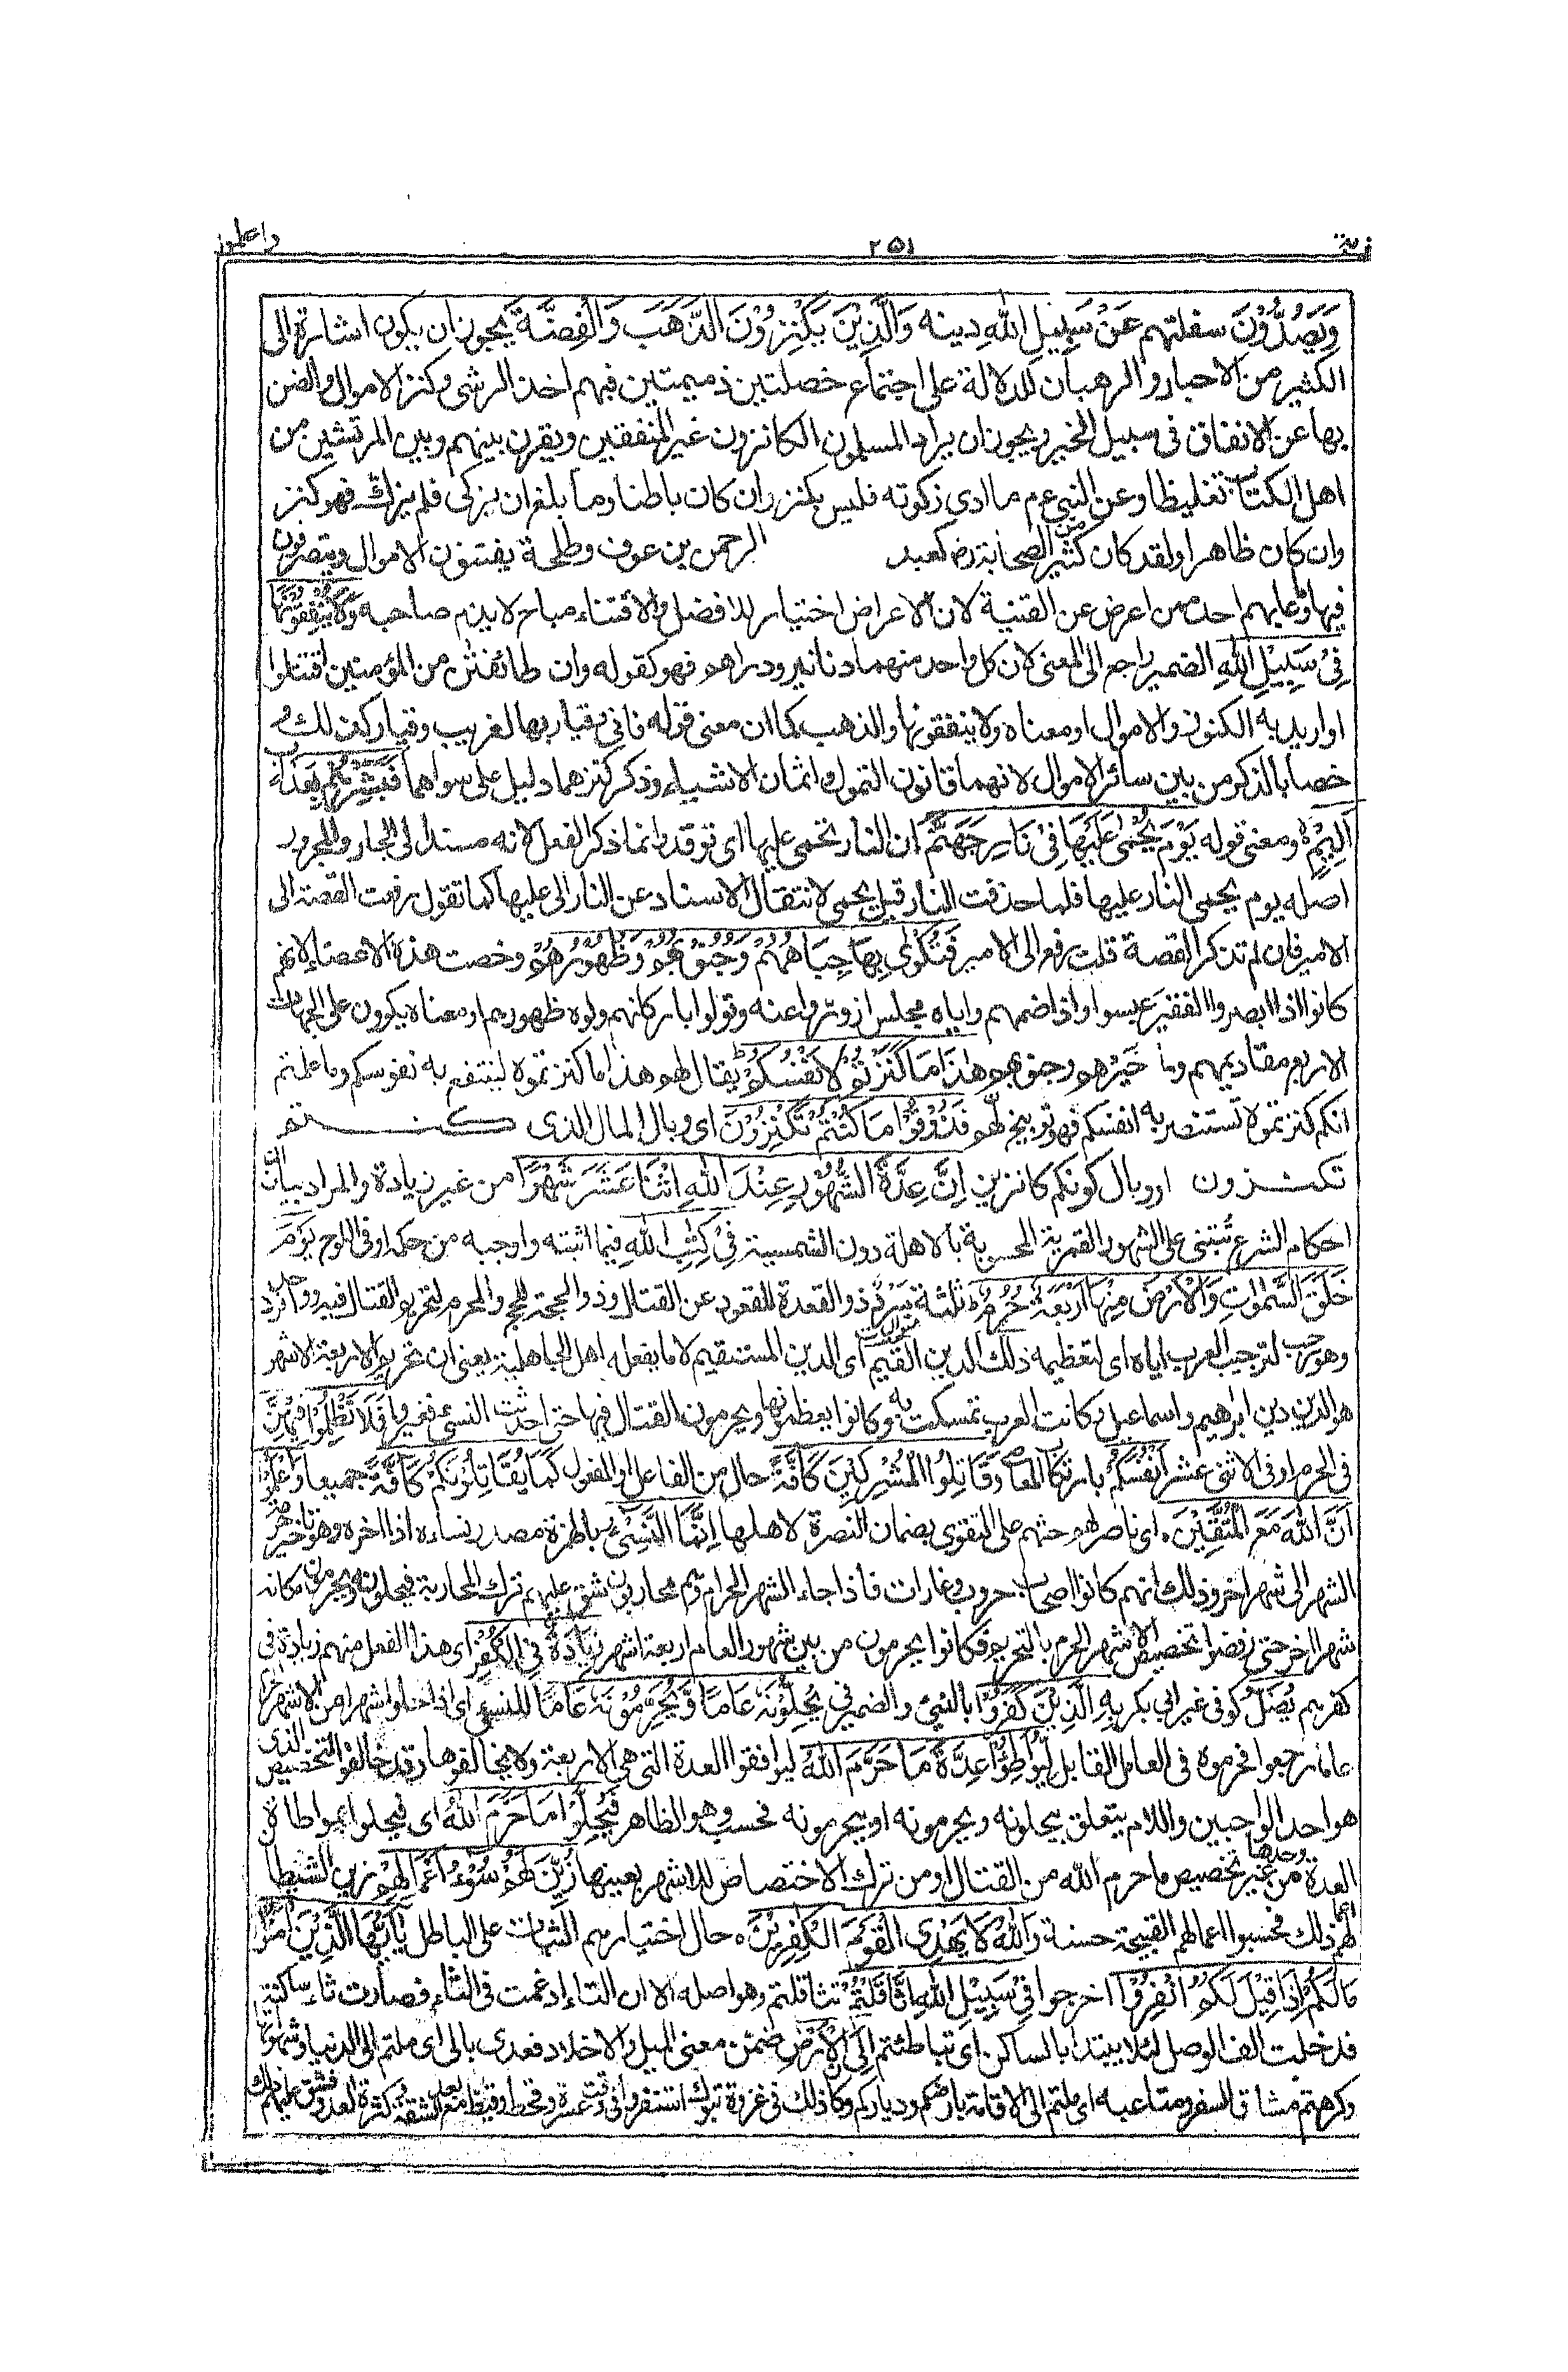 واعلموا ٢٥١ توبة
وَيَصُدُّوْنَ سفلتهم عَنْ سَبِيلِ اللهِ دينه وَالَّذِيْنَ يَكْنِزُوْنَ الذَّهَبَ وَالْفِضَّةَ يجوز ان يكون اشارة الى
الكثير من الاحبار والرهبان للدلالة على اجتماع خصلتين ذميمتين فيهم اخذ الرشى وكنز الاموال والضن
بها عن الانفاق فى سبيل الخير ويجوز ان يراد المسلمون الكانزون غير المنفقين ويقرن بينهم وبين المرتشين من
اهل الكتاب تغليظا وعن النبى ءم ما ادى زكوته فليس بكنز وان كان باطنا وما بلغ ان يزكى فلم يزك فهو كنز
وان كان ظاهرا ولقد كان كثير من الصحابة رض كعبد الرحمن بن عوف وطلحة يقتنون الاموال ويتصرفون
فيها وما عابهم احد ممن اعرض عن القنية لان الاعراض اختيار للافضل والاقتناء مباح لا يذم صاحبه وَلَا يُنْفِقُوْنَهَا
فِىْ سَبِيْلِ اللهِ الضمير راجع الى المعنى لان كل واحد منهما دنانير ودراهم فهو كقوله وان طائفتن من المؤمنين اقتتلوا
او اريد به الكنوز والاموال او معناه ولا ينفقونها والذهب كما ان معنى قوله فانى وقيار بها لغريب وقيار كذلك و
خصا بالذكر من بين سائر الاموال لانهما قانون التمول واثمان الاشياء وذكر كنزهما دليل على سواهما فَبَشِّرْهُمْ بِعَذَابٍ
اَلِيْمٍ ومعنى قوله يَوْمَ يُحْمٰى عَلَيْهَا فِىْ نَارِ جَهَنَّمَ ان النار تحمى عليها اى توقد وانما ذكر الفعل لانه مسند الى الجار والمجرور
اصله يوم تحمى النار عليها فلما حذفت النار قيل يحمى لانتقال الاسناد عن النار الى عليها كما تقول رفعت القصة الى
الامير فان لم تذكر القصة قلت رفع الى الامير فَتُكْوٰى بِهَا جِبَاهُهُمْ وَجُنُوْبُهُمْ وَظُهُوْرُهُمْ وخصت هذه الاعضاء لانهم
كانوا اذا ابصروا الفقير عبسوا واذا ضمهم واياه مجلس ازوروا عنه وتولوا باركانهم ولوه ظهورهم او معناه يكوون على الجهات
الاربع مقاديمهم وماخيرهم وجنوبهم هٰذَا مَا كَنَزْتُمْ لِاَنْفُسِكُمْ يقال لهم هذا ما كنزتموه لتنتفع به نفوسكم وما علمتم
انكم كنزتموه لتستضر به انفسكم فهو توبيخ لهم فَذُوْقُوْا مَا كُنْتُمْ تَكْنِزُوْنَ اى وبال المال الذى كنتم
تكنزون او وبال كونكم كانزين اِنَّ عِدَّةَ الشُّهُوْرِ عِنْدَ اللهِ اثْنَا عَشَرَ شَهْرًا من غير زيادة والمراد بيان ان
احكام الشرع تبتنى على الشهور القمرية المحسوبة بالاهلة دون الشمسية فِىْ كِتٰبِ اللهِ فيما اثبته واوجبه من حكمه او فى اللوح يَوْمَ
خَلَقَ السَّمٰوٰتِ وَالْاَرْضَ مِنْهَا اَرْبَعَةٌ حُرُمٌ ثلثة سرد متواليات ذو القعدة للقعود عن القتال وذو الحجة للحج والمحرم لتحريم القتال فيه وواحد فرد
وهو رجب لترجيب العرب اياه اى لتعظيمه ذٰلِكَ الدِّيْنُ الْقَيِّمُ اى الدين المستقيم لا ما يفعله اهل الجاهلية يعنى ان تحريم الاربعة الاشهر
هو الدين دين ابراهيم واسماعيل وكانت العرب تمسكت به وكانوا يعظمونها ويحرمون القتال فيها حتى احدثت النسىء فغيروا فَلَا تَظْلِمُوْا فِيْهِنَّ
فى الحرم او فى الاثنى عشر اَنْفُسَكُمْ بارتكاب المعاصى وَقَاتِلُوا الْمُشْرِكِيْنَ كَافَّةً حال من الفاعل او المفعول كَمَا يُقَاتِلُوْنَكُمْ كَافَّةً جميعا وَاعْلَمُوْا
اَنَّ اللهَ مَعَ الْمُتَّقِيْنَ اى ناصر لهم حثهم على التقوى بضمان النصرة لاهلها اِنَّمَا النَّسِىْءُ بالهمزة مصدر نساءه اذا اخره وهو تاخير حرمة
الشهر الى شهر اخر وذلك انهم كانوا اصحاب حروب وغارات فاذا جاء الشهر الحرام وهم محاربون شق عليهم ترك المحاربة فيحلونه ويحرمون مكانه
شهرا اخر حتى رفضوا تخصيص الاشهر الحرم بالتحريم فكانوا يحرمون من بين شهور العام اربعة اشهر زِيَادَةٌ فِى الْكُفْرِ اى هذا الفعل منهم زيادة فى
كفرهم يُضَلُّ كوفى غير ابى بكر بِهِ الَّذِيْنَ كَفَرُوْا بالنسئ والضمير فى يُحِلُّوْنَهٗ عَامًا وَّيُحَرِّمُوْنَهٗ عَامًا للنسىء اى اذا احلوا شهرا من الاشهر الحرم
عاما رجعوا فحرموه فى العام القابل لِّيُوَاطِئُوْا عِدَّةَ مَا حَرَّمَ اللهُ ليوافقوا العدة التى هى الاربعة ولا يخالفوها وقد خالفوا التخصيص الذى
هو احد الواجبين واللام يتعلق بيحلونه ويحرمونه او بيحرمونه فحسب وهو الظاهر فَيُحِلُّوْا مَا حَرَّمَ اللهُ اى فيحلوا بمواطاة
العدة وحدها من غير تخصيص ما حرم الله من القتال او من ترك الاختصاص للاشهر بعينها زُيِّنَ لَهُمْ سُوْءُ اَعْمَالِهِمْ زين الشيطان
لهم ذلك فحسبوا اعمالهم القبيحة حسنة وَاللهُ لَا يَهْدِى الْقَوْمَ الْكٰفِرِيْنَ حال اختيارهم الثبات على الباطل يٰٓاَيُّهَا الَّذِيْنَ اٰمَنُوْا
مَا لَكُمْ اِذَا قِيْلَ لَكُمُ انْفِرُوْا اخرجوا فِىْ سَبِيْلِ اللهِ اثَّاقَلْتُمْ تثاقلتم وهو اصله الا ان التاء ادغمت فى الثاء فصارت ثاء ساكنة
فدخلت الف الوصل لئلا يبتدأ بالساكن اى تباطئتم اِلَى الْاَرْضِ ضمن معنى الميل والاخلاد فعدى بالى اى ملتم الى الدنيا وشهواتها
وكرهتم مشاق السفر ومتاعبه او ملتم الى الاقامة بارضكم ودياركم وكان ذلك فى غزوة تبوك استنفروا فى وقت عسرة وقحط وقيظ مع بعد الشقة وكثرة العدو فشق عليهم ذلك